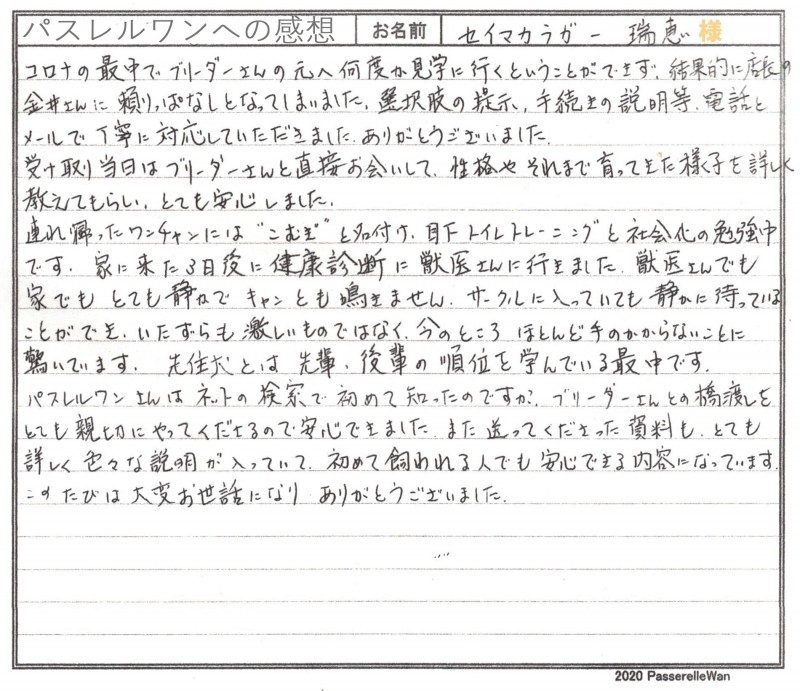 パスレルワンへの感想 お名前 セイマカラガー 瑞恵 様
コロナの最中でブリーダーさんの元へ何度か見学に行くということができず、結果的に店長の
金井さんに頼りっぱなしとなってしまいました。選択肢の提示、手続きの説明等、電話と
メールで丁寧に対応していただきました。ありがとうございました。
受け取り当日はブリーダーさんと直接お会いして、性格やそれまで育ってきた様子を詳しく
教えてもらい、とても安心しました。
連れ帰ったワンチャンには"こむぎ"と名付け、目下トイレトレーニングと社会化の勉強中
です。家に来た3日後に健康診断に獣医さんに行きました。獣医さんでも
家でもとても静かでキャンとも鳴きません。サークルに入っていても静かに待っている
ことができ、いたずらも激しいものではなく、今のところほとんど手のかからないことに
驚いています。先住犬とは先輩、後輩の順位を学んでいる最中です。
パスレルワンさんはネットの検索で初めて知ったのですが、ブリーダーさんとの橋渡しを
とても親切にやってくださるので安心できました。また送ってくださった資料も、とても
詳しく色々な説明が入っていて、初めて飼われる人でも安心できる内容になっています。
このたびは大変お世話になりありがとうございました。
2020 PasserelleWan